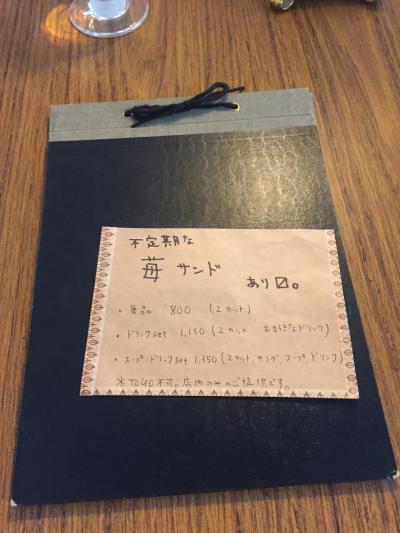 不定期な
苺 サンド
あり〼。
・単品 800 (2カット)
・ドリンクset 1,150 (2カット お好きなドリンク)
・スープ、ドリンクset 1,350 (2カット、サラダ、スープ、ドリンク)
※TOGO不可。店内のみのご提供です。